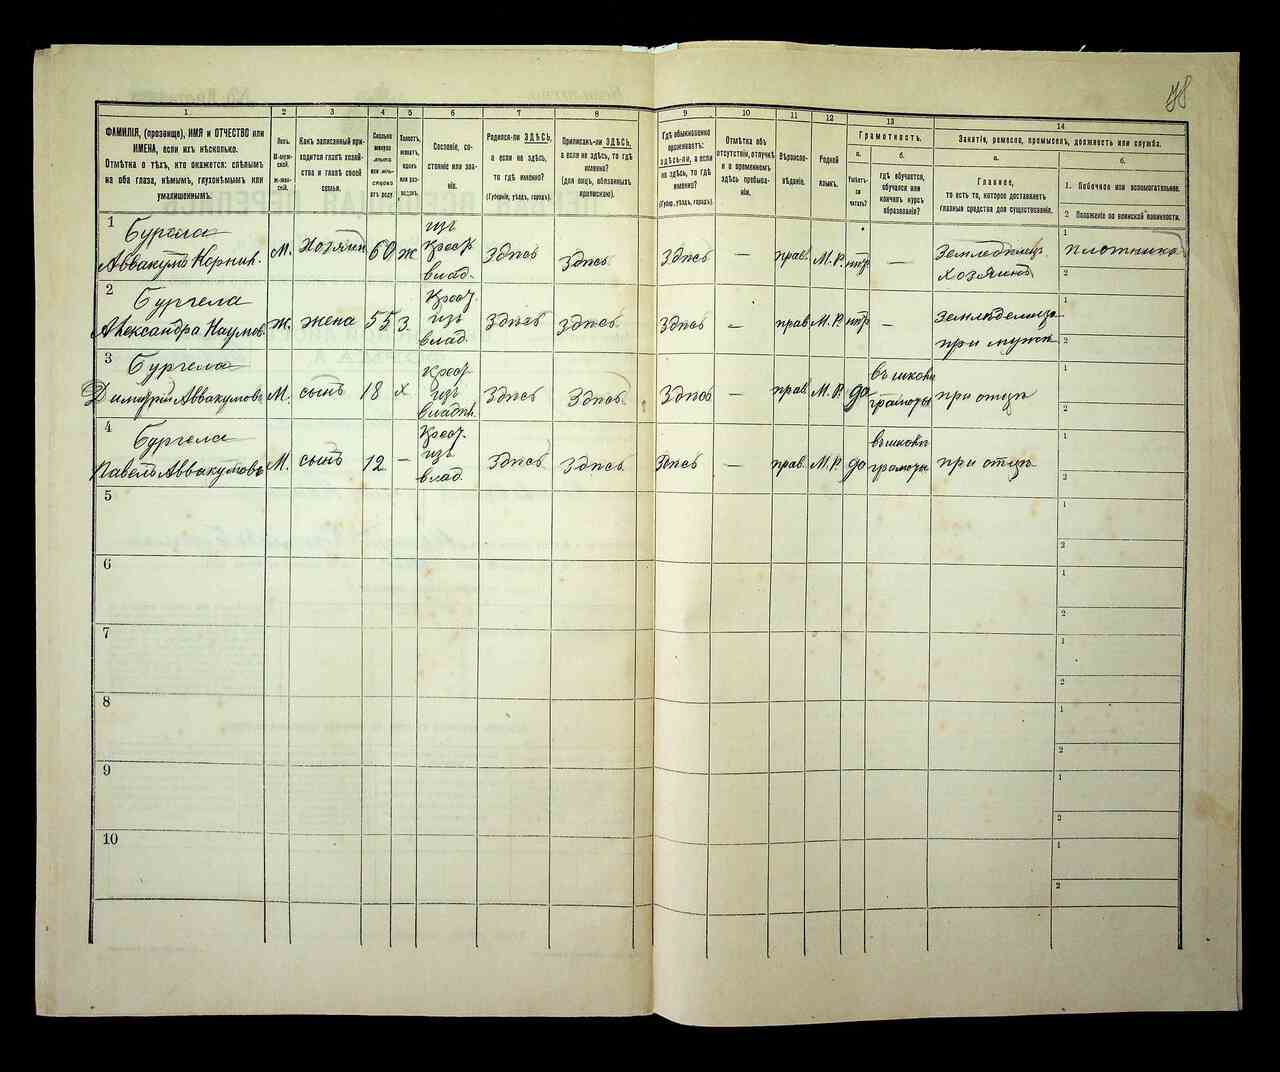 78
1 2 3 4 5 6 7 8 9 10 11 12 13 14
ФАМИЛІЯ, (прозвище), ИМЯ и ОТЧЕСТВО или
ИМЕНА, если ихъ нѣсколько.
Отмѣтка о тѣхъ, кто окажется: слѣпымъ
на оба глаза, нѣмымъ, глухонѣмымъ или
умалишеннымъ.
Полъ.
М-муж-
ской.
Ж-жен-
скій.
Какъ записанный при-
ходится главѣ хозяй-
ства и главѣ своей
семьи.
Сколько
минуло
лѣтъ
или мѣ-
сяцевъ
отъ роду.
Холостъ,
женатъ,
вдовъ
или раз-
веденъ.
Сословіе, со-
стояніе или зва-
ніе.
Родился-ли ЗДѢСЬ,
а если не здѣсь,
то гдѣ именно?
(Губернія, уѣздъ, городъ).
Приписанъ-ли ЗДѢСЬ,
а если не здѣсь, то гдѣ
именно?
(для лицъ, обязанныхъ
припискою).
Гдѣ обыкновенно
проживаетъ:
здѣсь-ли, а если
не здѣсь, то гдѣ
именно?
(Губер., уѣздъ, городъ).
Отмѣтка объ
отсутствіи, отлучкѣ
и о временномъ
здѣсь пребыва-
ніи.
Вѣроиспо-
вѣданіе.
Родной
языкъ.
Грамотность.
а.
Умѣетъ-
ли
читать?
б.
гдѣ обучается,
обучался или
кончилъ курсъ
образованія?
Занятіе, ремесло, промыселъ, должность или служба.
а.
Главное,
то есть то, которое доставляетъ
главныя средства для существованія.
б.
1. Побочное или вспомогательное.
2 Положеніе по воинской повинности.
1
Бургела
Аввакумъ Корник.
М. Хозяинъ 60 ж
изъ
крест
влад.
Здѣсь Здѣсь Здѣсь — прав. М. Р. нѣтъ —
Земледѣлец.
хозяинъ
1 Плотникъ
2
2
Бургела
Александра Наумов.
Ж. жена 55 з.
Крест.
изъ
влад.
Здѣсь Здѣсь Здѣсь — прав. М. Р. нѣтъ —
Земледѣлица
при мужѣ
1
2
3
Бургела
Димитрій Аввакумовъ
М. сынъ 18 х
крест
изъ
владѣл.
Здѣсь Здѣсь Здѣсь — прав. М. Р. да
въ школѣ
грамоты
при отцѣ
1
2
4
Бургела
Павелъ Аввакумовъ
М. сынъ 12 —
Крест.
изъ
влад.
Здѣсь Здѣсь Здѣсь — прав. М. Р. да
въ школѣ
грамоты
при отцѣ
1
2
5
1
2
6
1
2
7
1
2
8
1
2
9
1
2
10
1
2